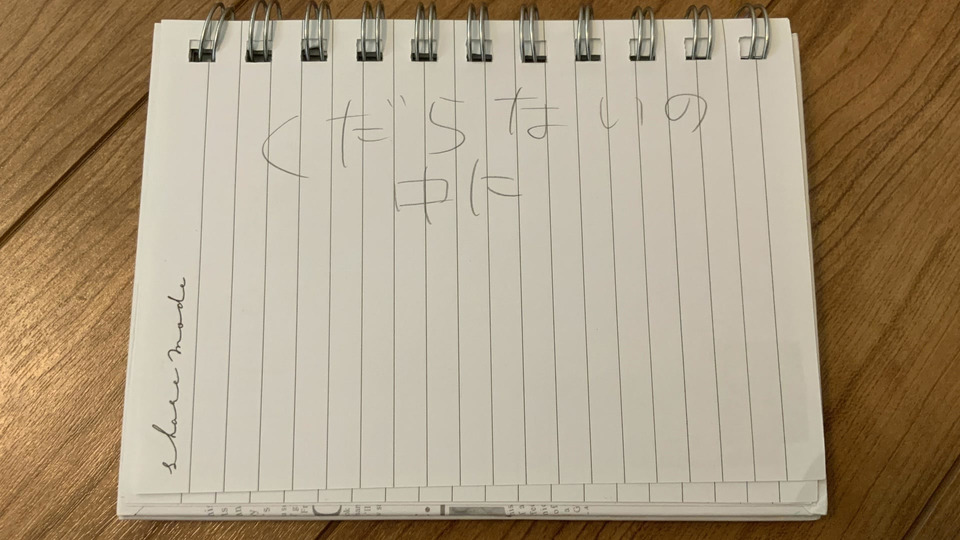 くだらないの
中に
share mode